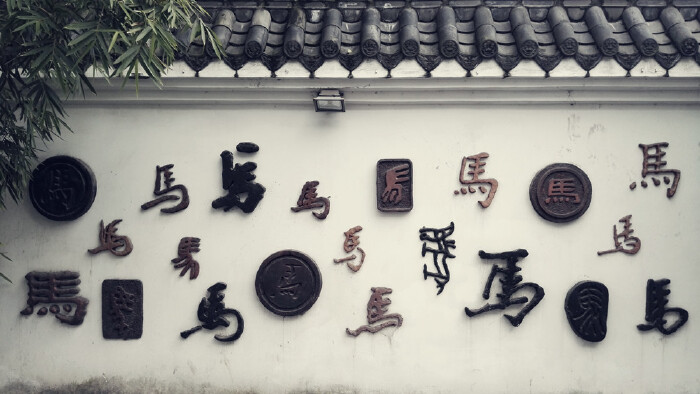 馬 馬 馬 馬 馬 馬 馬 馬
馬 馬 馬 馬
馬 馬 馬 馬 馬 馬 馬